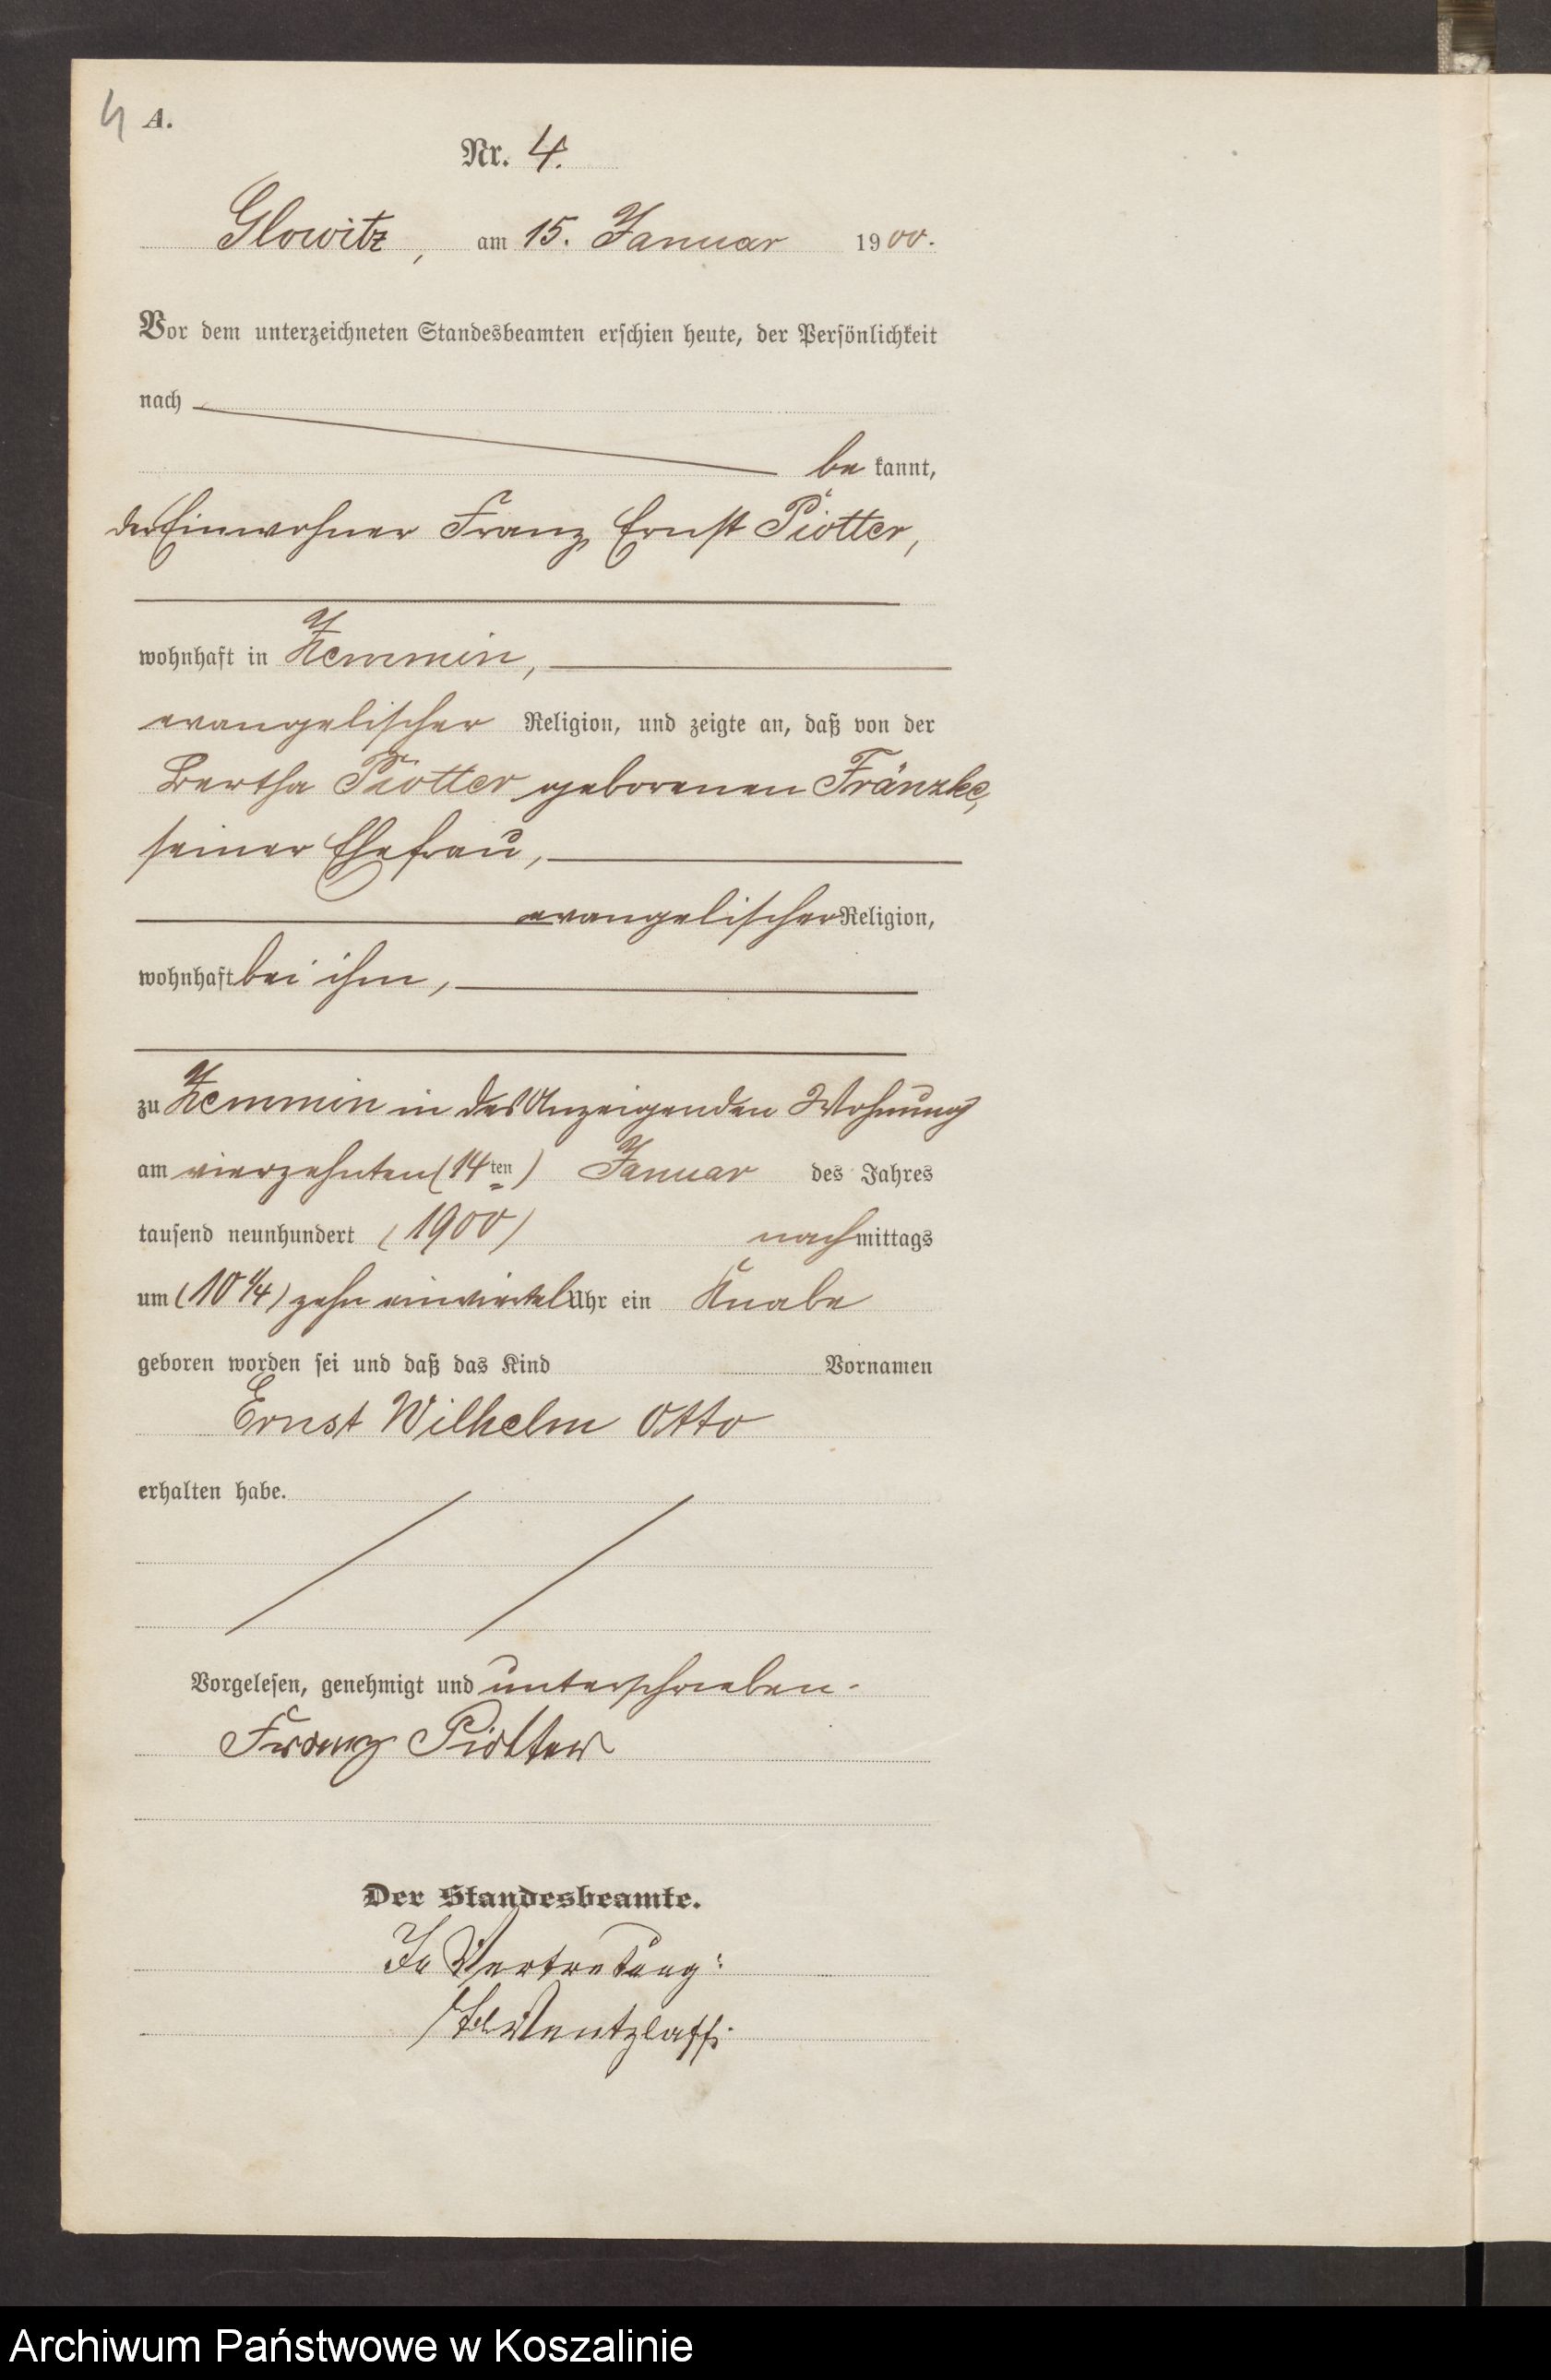 4 A.
Nr. 4.
Glowitz, am 15. Januar 1900.
Vor dem unterzeichneten Standesbeamten erschien heute, der Persönlichkeit
nach
be kannt,
der Einwohner Franz Ernst Piotter,
wohnhaft in Zemmin,
evangelischer Religion, und zeigte an, daß von der
Bertha Piotter geborenen Fränzke,
seiner Ehefrau,
evangelischer Religion,
wohnhaft bei ihm,
zu Zemmin in des Anzeigenden Wohnung
am vierzehnten (14ten) Januar des Jahres
tausend neunhundert (1900) nachmittags
um (10 1/4) zehn einviertel Uhr ein Knabe
geboren worden sei und daß das Kind Vornamen
Ernst Wilhelm Otto
erhalten habe.
Vorgelesen, genehmigt und unterschrieben.
Franz Piotter
Der Standesbeamte.
In Vertretung:
Wentzlaff.
Archiwum Państwowe w Koszalinie